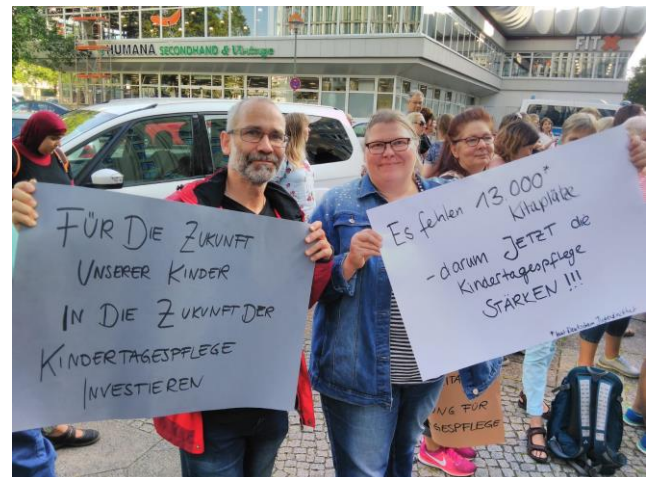 HUMANA SECONDHAND & Vintage
FITX
FÜR DIE ZUKUNFT
UNSERER KINDER
IN DIE ZUKUNFT DER
KINDERTAGESPFLEGE
INVESTIEREN
Es fehlen 13.000*
Kitaplätze
- darum JETZT die
Kindertagespflege
STÄRKEN !!!
NG FÜR
GESPFLEGE